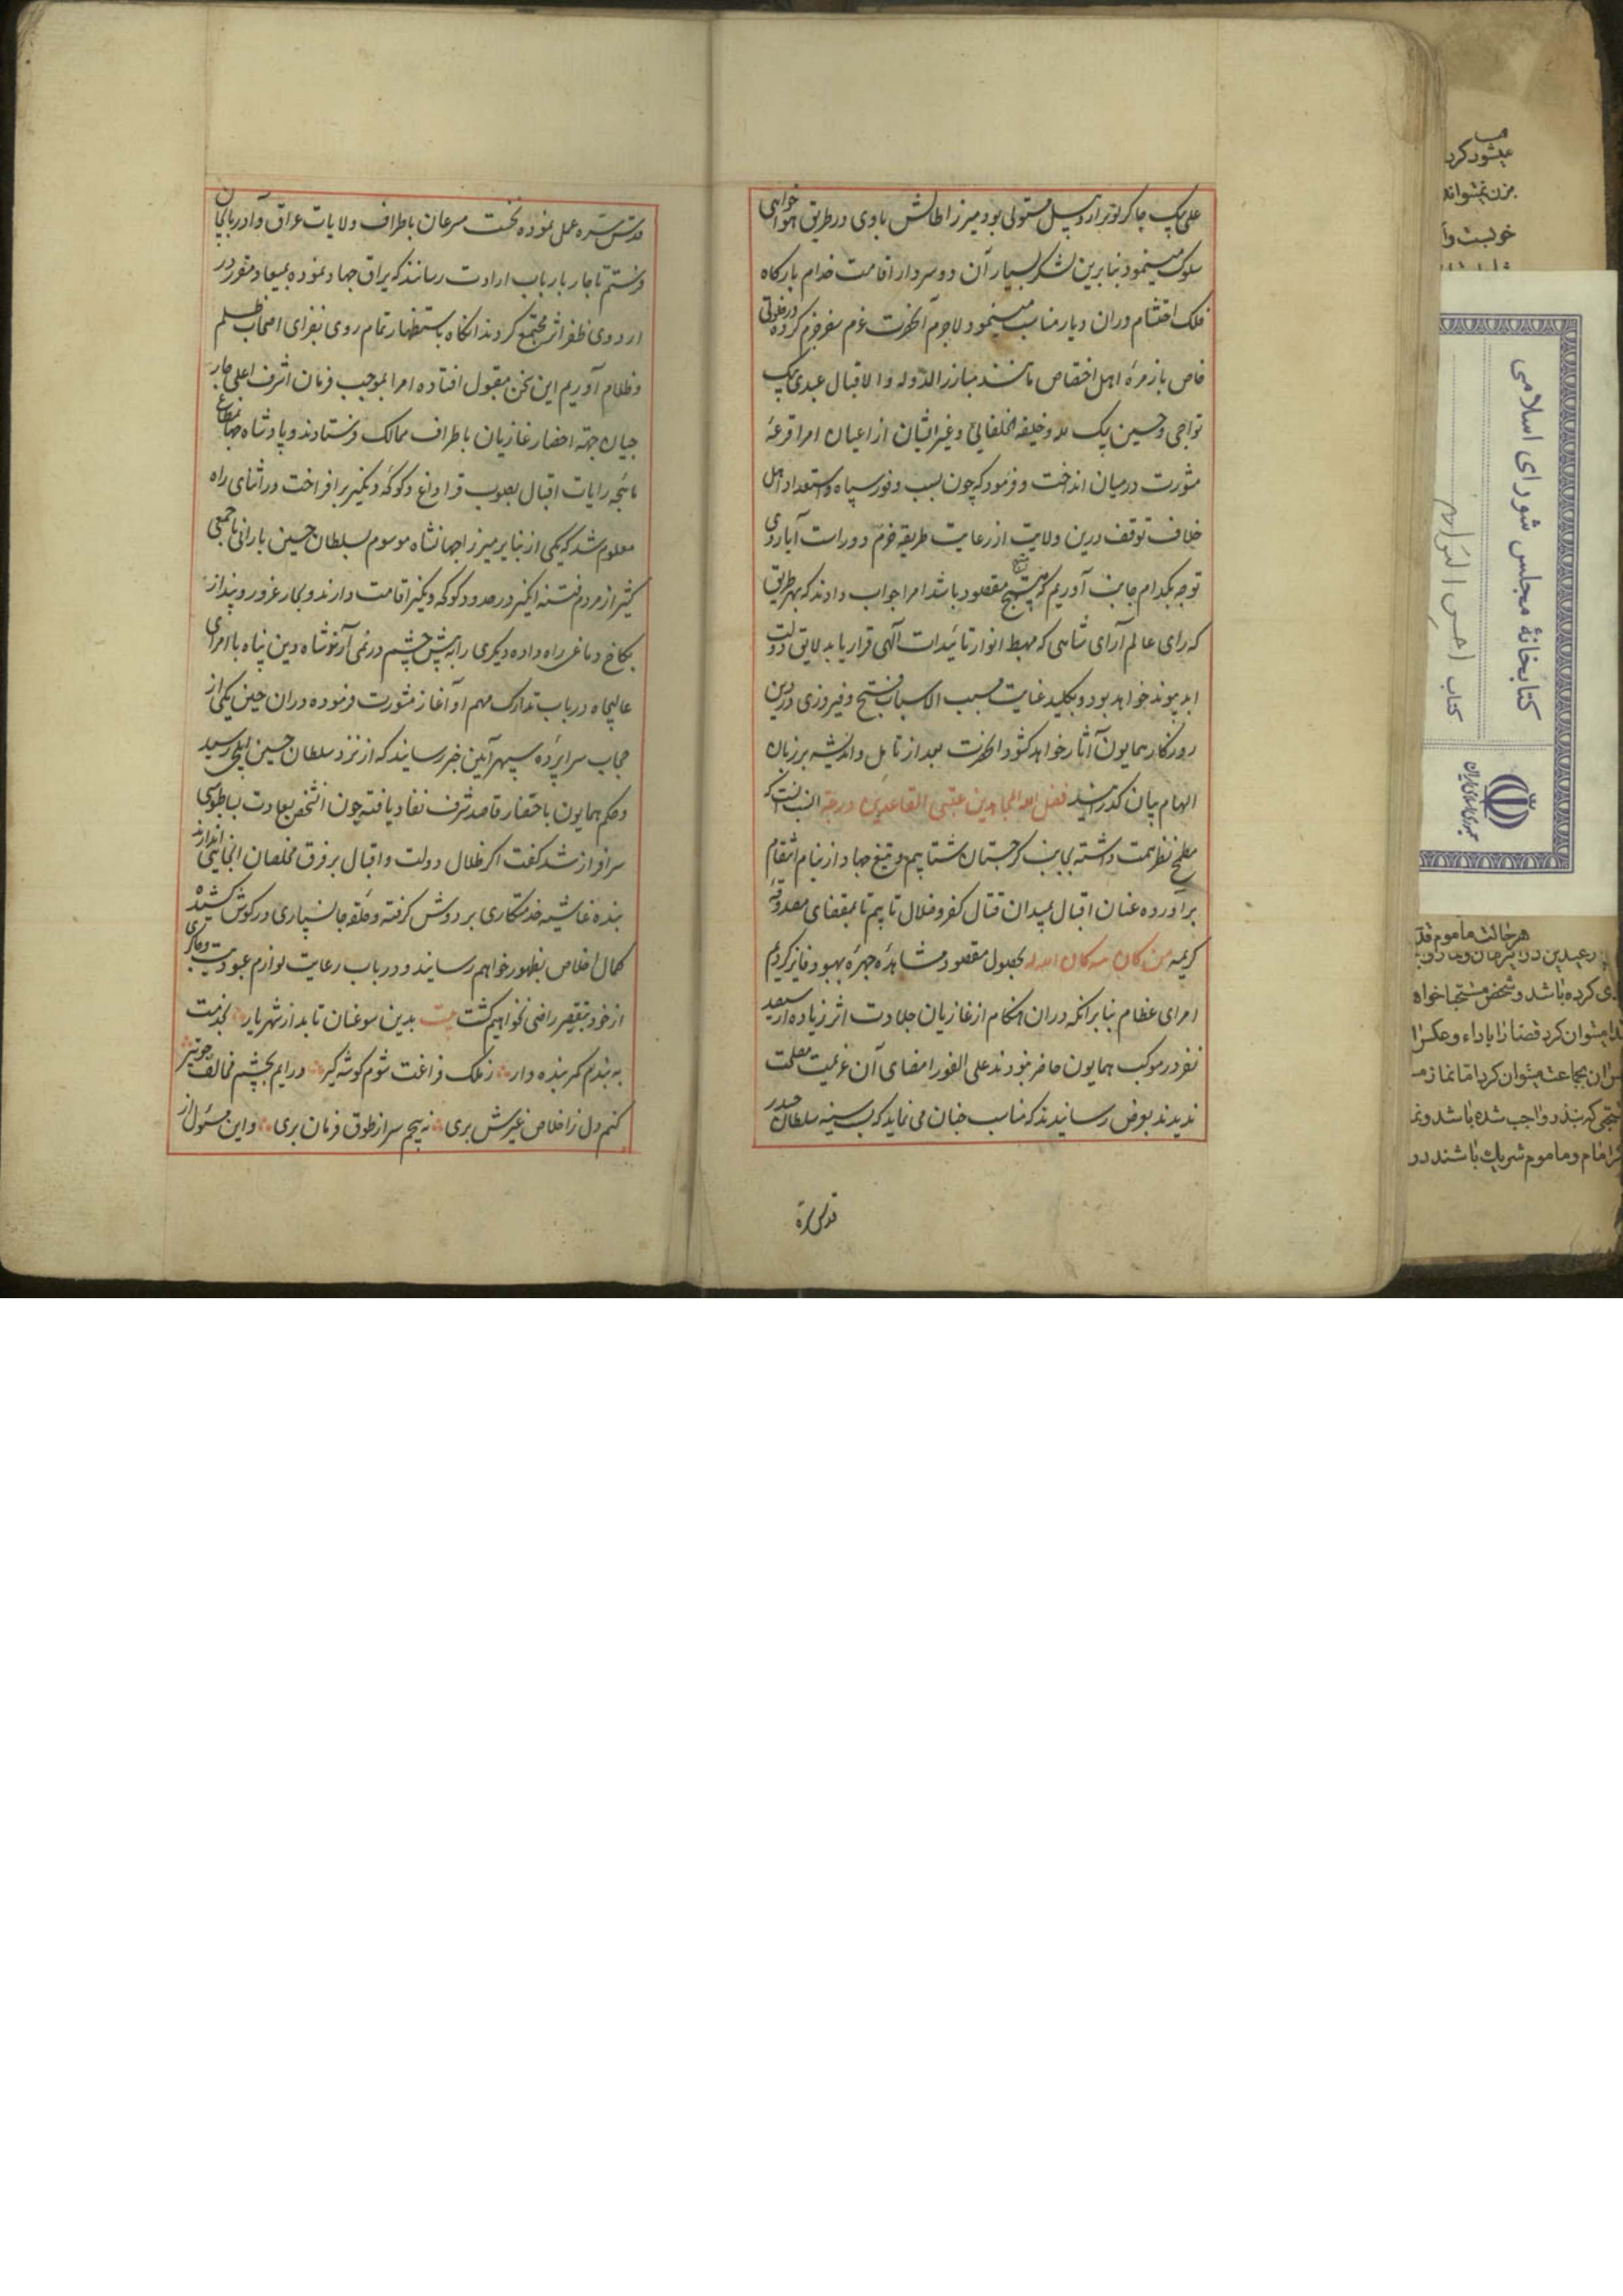 علی بیک جاکرلو بر اردبیل مستولی بود و میرزا طالش با وی در طریق هواخواهی
سلوک مینمود بنابرین لشکر بسیار آن دو سردار اقامت خدام بارگاه
فلک احتشام دران دیار مناسب نمینمود لاجرم آنحضرت عزم سفر جزم کرده در خلوتی
خاص با زمرهٔ اهل اختصاص مانند مبارز الدوله و الاقبال عبدی بیک
تواجی و حسین بیک لله و خلیفه الخلفائی و غیر ایشان از اعیان امرا قرعهٔ
مشورت در میان انداخت و فرمود که چون بسبب وفور سپاه و استعداد اهل
خلاف توقف درین ولایت از رعایت طریقه حزم دور است آیا روی
توجه بکدام جانب آوریم که منتج مقصود باشد امرا جواب دادند که بهر طریق
که رای عالم آرای شاهی که مهبط انوار تائیدات آلهی قرار یابد لایق دولت
ابد پیوند خواهد بود و بکلید عنایت مسبب الاسباب فتح و فیروزی درین
روزکار همایون آثار خواهد کشود انحضرت بعد از تامل و اندیشه بر زبان
الهام بیان گذرانید فضل الله المجاهدین علی القاعدین درجة انسب آنست که
مطمح نظر همت داشته بجانب کرجستان شتابیم و تیغ جهاد از نیام انتقام
برآورده عنان اقبال بمیدان قتال کفر و ضلال تابیم تا بمقتضای مصدوقهٔ
کریمه من کان لله کان الله له بحصول مقصود و مشاهدهٔ چهرهٔ بهبود فایز کردیم
امرای عظام بنا برانکه دران هنکام از غازیان جلادت اثر زیاده از سیصد
نفر در موکب همایون حاضر نبودند علی الفور امضای آن عزیمت مصلحت
ندیدند بعرض رسانیدند که مناسب چنان می نماید که بسنیه سلطان حیدر
قدس سره
قدس سره عمل نموده نخست مسرعان باطراف ولایات عراق و آذربایجان
فرستیم تا جار بارباب ارادت رسانند که یراق جهاد نموده بمیعاد مقرر در
اردوی ظفر اثر مجتمع کردند انکاه باستظهار تمام روی بغزای اصحاب ظلم
و ظلام آوریم این سخن مقبول افتاده امرا بموجب فرمان اشرف اعلی جار
جیان جهة احضار غازیان باطراف ممالک فرستادند و پادشاه جهانمطاع
رایات اقبال بصوب قراداغ و کوکه دنکیز برافراخت در اثنای راه
معلوم شد که یکی از نبایر میرزا جهانشاه موسوم بسلطان حسین بارانی با جمعی
کثیر از مردم فتنه انکیز در حدود کوکه دنکیز اقامت دارند و بخار غرور و پندار
بکاخ دماغ راه داده دیکری را به پیش چشم در نمی آرند شاه دین پناه با امرای
عالیجاه در باب تدارک مهم او آغاز مشورت فرموده دران حین یکی از
حجاب سراپردهٔ سپهر آیین خبر رسانید که از نزد سلطان حسین ایلچی رسید
و حکم همایون باحضار قاصد شرف نفاد یافته چون آنشخص بسعادت بساطبوسی
سرافراز شد گفت اکر ظلال دولت و اقبال بر فرق مخلصان انجانبی اندازند
بنده غاشیه خدمتکاری بر دوش کرفته و حلقه جانسپاری در کوش کشیده
کمال اخلاص بظهور خواهم رسانید و در باب رعایت لوازم عبودیت و چاکری
از خود بتقصیر راضی نخواهم کشت بیت بدین سو عنان تابد ار شهریار بخدمت
به بندم کمر بنده وار ز ملک فراغت شوم کوشه کیر درایم بچشم مخالف چو تیر
کنم دل ز اخلاص غیرش بری نه پیچم سر از طوق فرمان بری و این مسئول از
کتابخانهٔ مجلس شورای اسلامی
کتاب احسن التواریخ
جمهوری اسلامی ایران